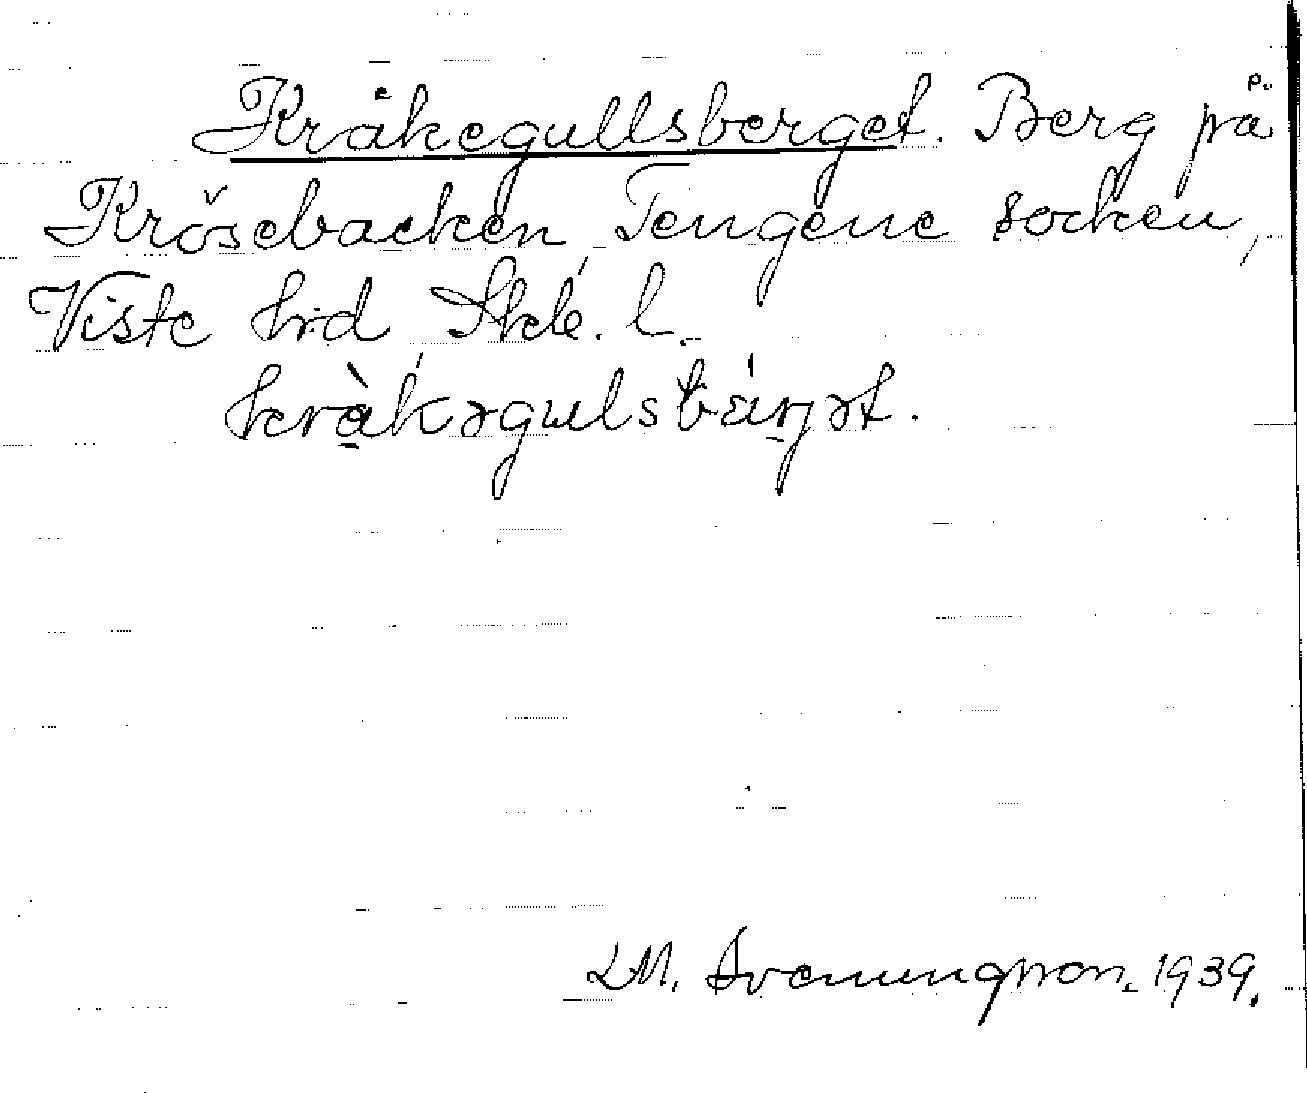 Kråkegullsberget. Berg på
Krösebacken Tengene socken,
Viste hrd Skb. l.
kràkəgulsbárjət.
LM. Svenungsson. 1939.